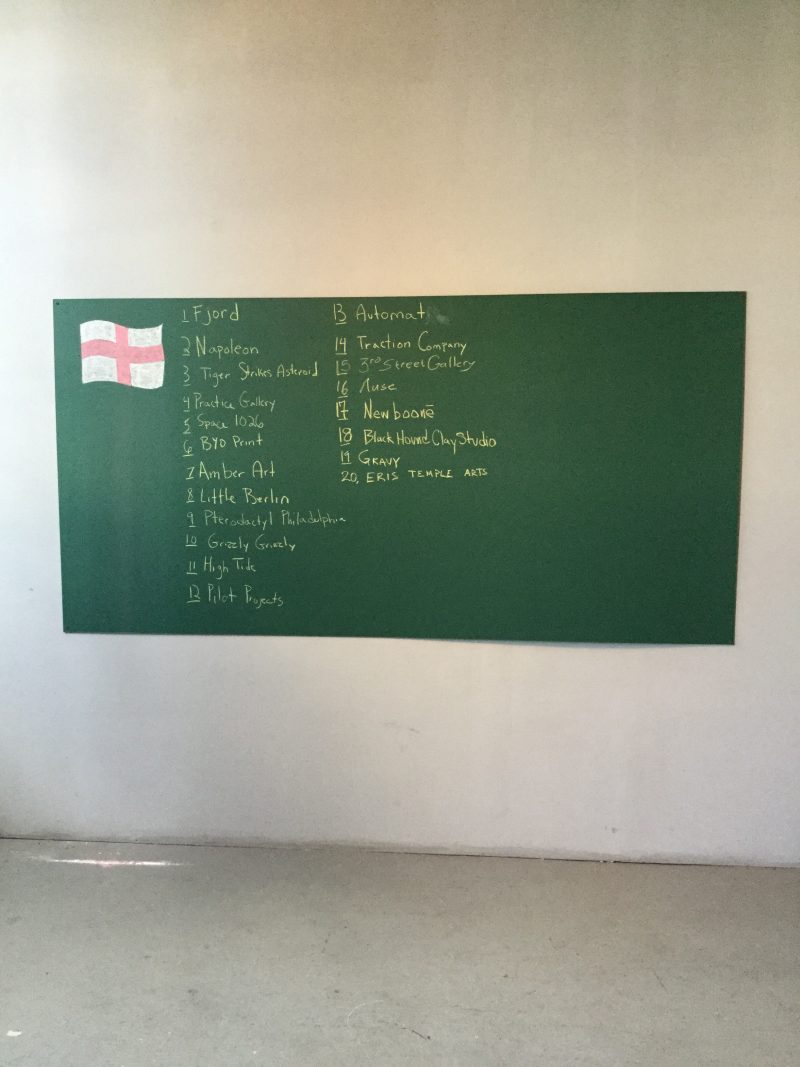 1 Fjord
2 Napoleon
3 Tiger Strikes Asteroid
4 Practice Gallery
5 Space 1026
6 BYO Print
7 Amber Art
8 Little Berlin
9 Pterodactyl Philadelphia
10 Grizzly Grizzly
11 High Tide
12 Pilot Projects
13 Automat
14 Traction Company
15 3rd Street Gallery
16 Muse
17 New boonē
18 Black Hound Clay Studio
19 GRAVY
20, ERIS TEMPLE ARTS